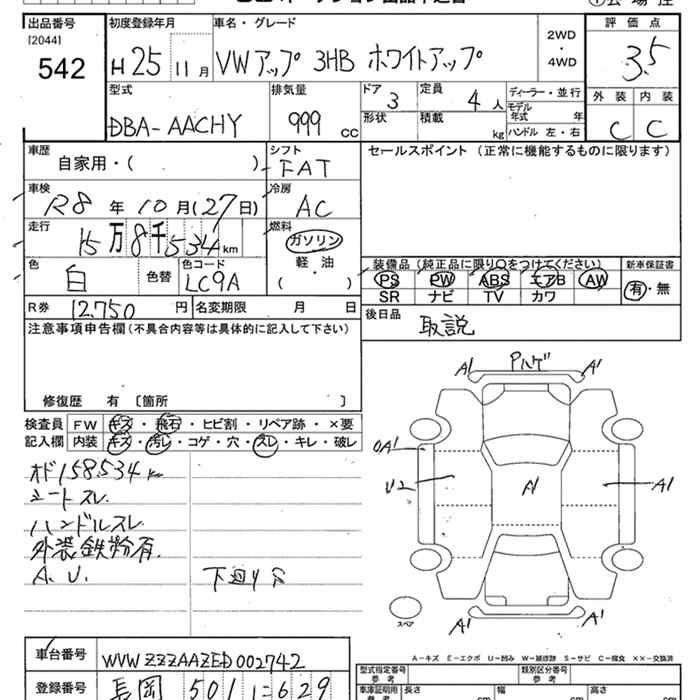 出品番号 初度登録年月 車名・グレード 評価点
[2044]
542 H25 11月 VWアップ 3HB ホワイトアップ 2WD・4WD 3.5
外装 内装
C C
型式 排気量 ドア 定員 ディーラー・並行
DBA-AACHY 999cc 3 4人 モデル年式 年
形状 積載 kg ハンドル 左・右
車歴 シフト セールスポイント (正常に機能するものに限ります)
自家用・( ) FAT
車検 冷房
R8年10月(27日) AC
走行 燃料
15万8千534km ガソリン
軽・油
( )
色 色替 色コード
白 LC9A
装備品(純正品に限り○をつけてください) 新車保証書
PS PW ABS エアB AW 有・無
SR ナビ TV カワ
R券 12,750円 名変期限 月 日
後日品 取説
注意事項申告欄(不具合内容等は具体的に記入して下さい)
修復歴 有 〔箇所 〕
検査員 FW キズ・飛石・ヒビ割・リペア跡・×要
記入欄 内装 キズ・汚レ・コゲ・穴・スレ・キレ・破レ
オド158,534km
シートスレ
ハンドルスレ
外装鉄粉有
A.U.
A1 Pハゲ A1
A1
U2 A1 A1
スペア
A1 A1
A-キズ E-エクボ U-凹み W-補修跡 S-サビ C-腐食 ××-交換済
車台番号 WVWZZZAAZED002742
型式指定番号 参考 類別区分番号 参考
登録番号 長岡 501 に629
車庫証明用 参考 長さ cm 幅 cm 高さ cm